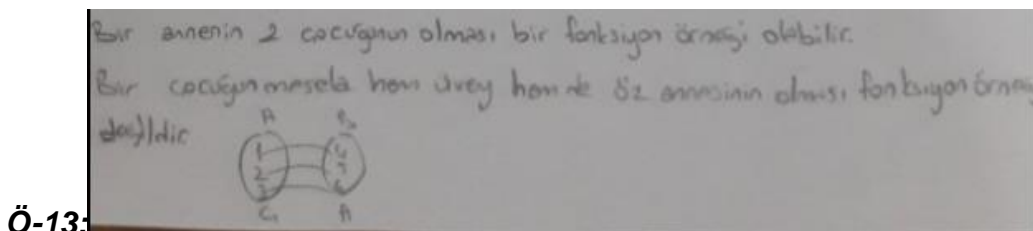 Bir annenin 2 çocuğunun olması bir fonksiyon örneği olabilir.
Bir çocuğun mesela hem üvey hem de öz annesinin olması fonksiyon örneği
değildir
A B
1 4
2 5
3 6
Ç A
Ö-13: